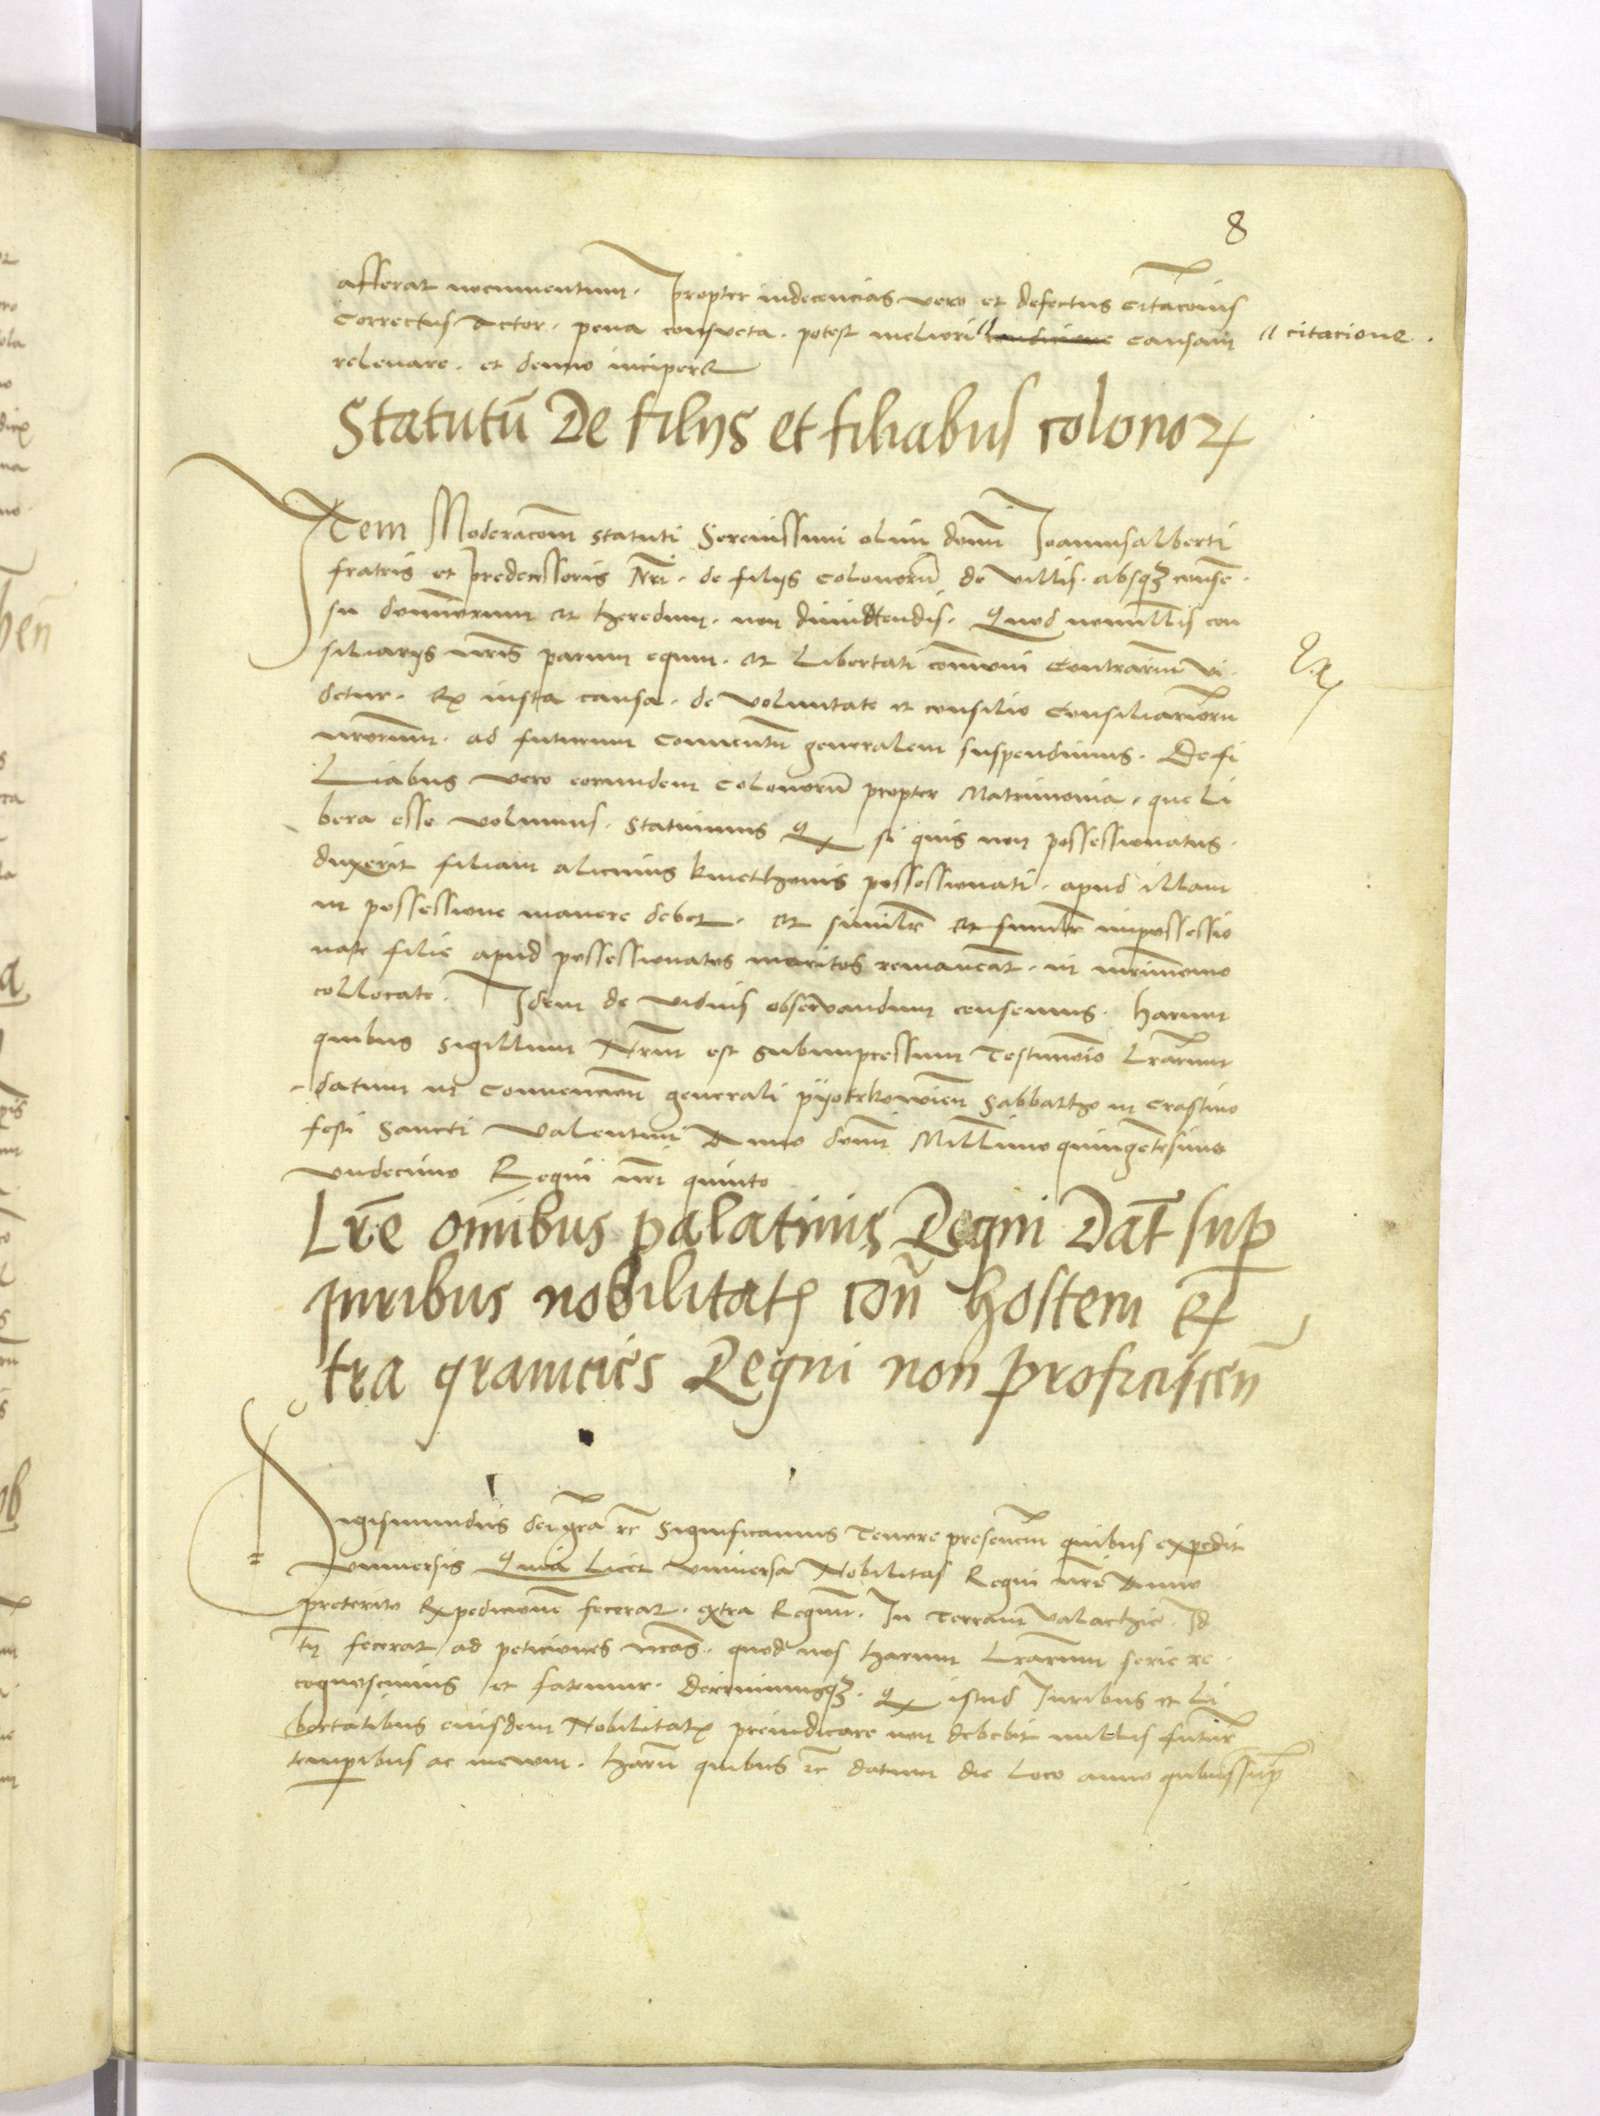 8
afferat nocumentum. Propter indecencias vero et defectus citacõnis
Correctus Actor. pena consueta. potest meliori causam // citacione.
relevare. et denuo incipere
Statutũ De filijs et filiabus colonoꝝ
Item Moderacõem statuti Serenissimi olim domĩ Joannisalberti
fratris et predecessoris Nrĩ. de filijs colonorũ de villis. absqꝫ consen
su dominorum et heredum. non dimittendis. Quod nonnullis con
siliarijs nrĩs parum equum. et Libertati cõmuni Contrarium vi
detur. Ex iusta causa. de voluntate et consilio Consiliariorũ
nrorum. ad futurum Conventũ generalem suspendimus. De fi
Liabus vero eorundem Colonorũ propter Matrimonia. que li
bera esse volumus. statuimus Qͅ si quis non possessionatus.
duxerit filiam alicuius kmethonis possessionati. apud illam
in possessione manere debet. et similr̃ et impossessio
nate filie apud possessionatos maritos remaneãt. in mrimonio
collocate. Idem de viduis observandum censemus. Harum
quibus Sigillum Nrm̃ est subimpressum Testimonio Lrarum
datum in Convencione generali pijotrkowieñ Sabbatho in Crastino
festi Sancti Valentini Anno domĩ Millimo quingẽtesimo
undecimo Regni nrĩ quinto
Lrẽ omĩbus palatinis Regni Dat̃ sup̱
Iuribus nobilitatꝭ con̄ hostem Ex
tra granicies Regni non proficisceñ
Sigismundus dei grã rc̃ Significamus Tenore presencm̃ quibus expedit
Universis Quia Licet universa Nobilitas Regni nrĩ Anno
preterito Expedicionẽ fecerat. extra Regnũ. In Terram Valachie. Id
tñ fecerat ad peticiones nrãs. quod nos harum Lrarum serie re
cognoscimus et fatemur. Decrevimusqꝫ. Qͅ istud Iuribus et Li
bertatibus eiusdem Nobilitatꝭ preiudicare non debebit ullis futur̃
temporibus ac in evum. Harũ quibus rc̃ datum die Loco anno quibus sup̱